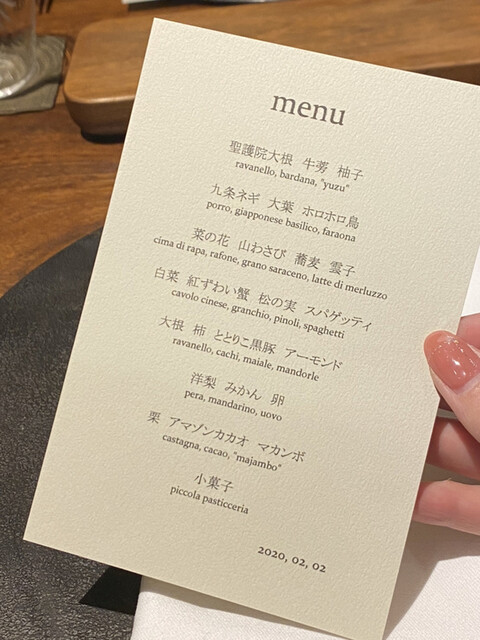 menu
聖護院大根 牛蒡 柚子
ravanello, bardana, "yuzu"
九条ネギ 大葉 ホロホロ鳥
porro, giapponese basilico, faraona
菜の花 山わさび 蕎麦 雲子
cima di rapa, rafone, grano saraceno, latte di merluzzo
白菜 紅ずわい蟹 松の実 スパゲッティ
cavolo cinese, granchio, pinoli, spaghetti
大根 柿 ととりこ黒豚 アーモンド
ravanello, cachi, maiale, mandorle
洋梨 みかん 卵
pera, mandarino, uovo
栗 アマゾンカカオ マカンボ
castagna, cacao, "majambo"
小菓子
piccola pasticceria
2020, 02, 02